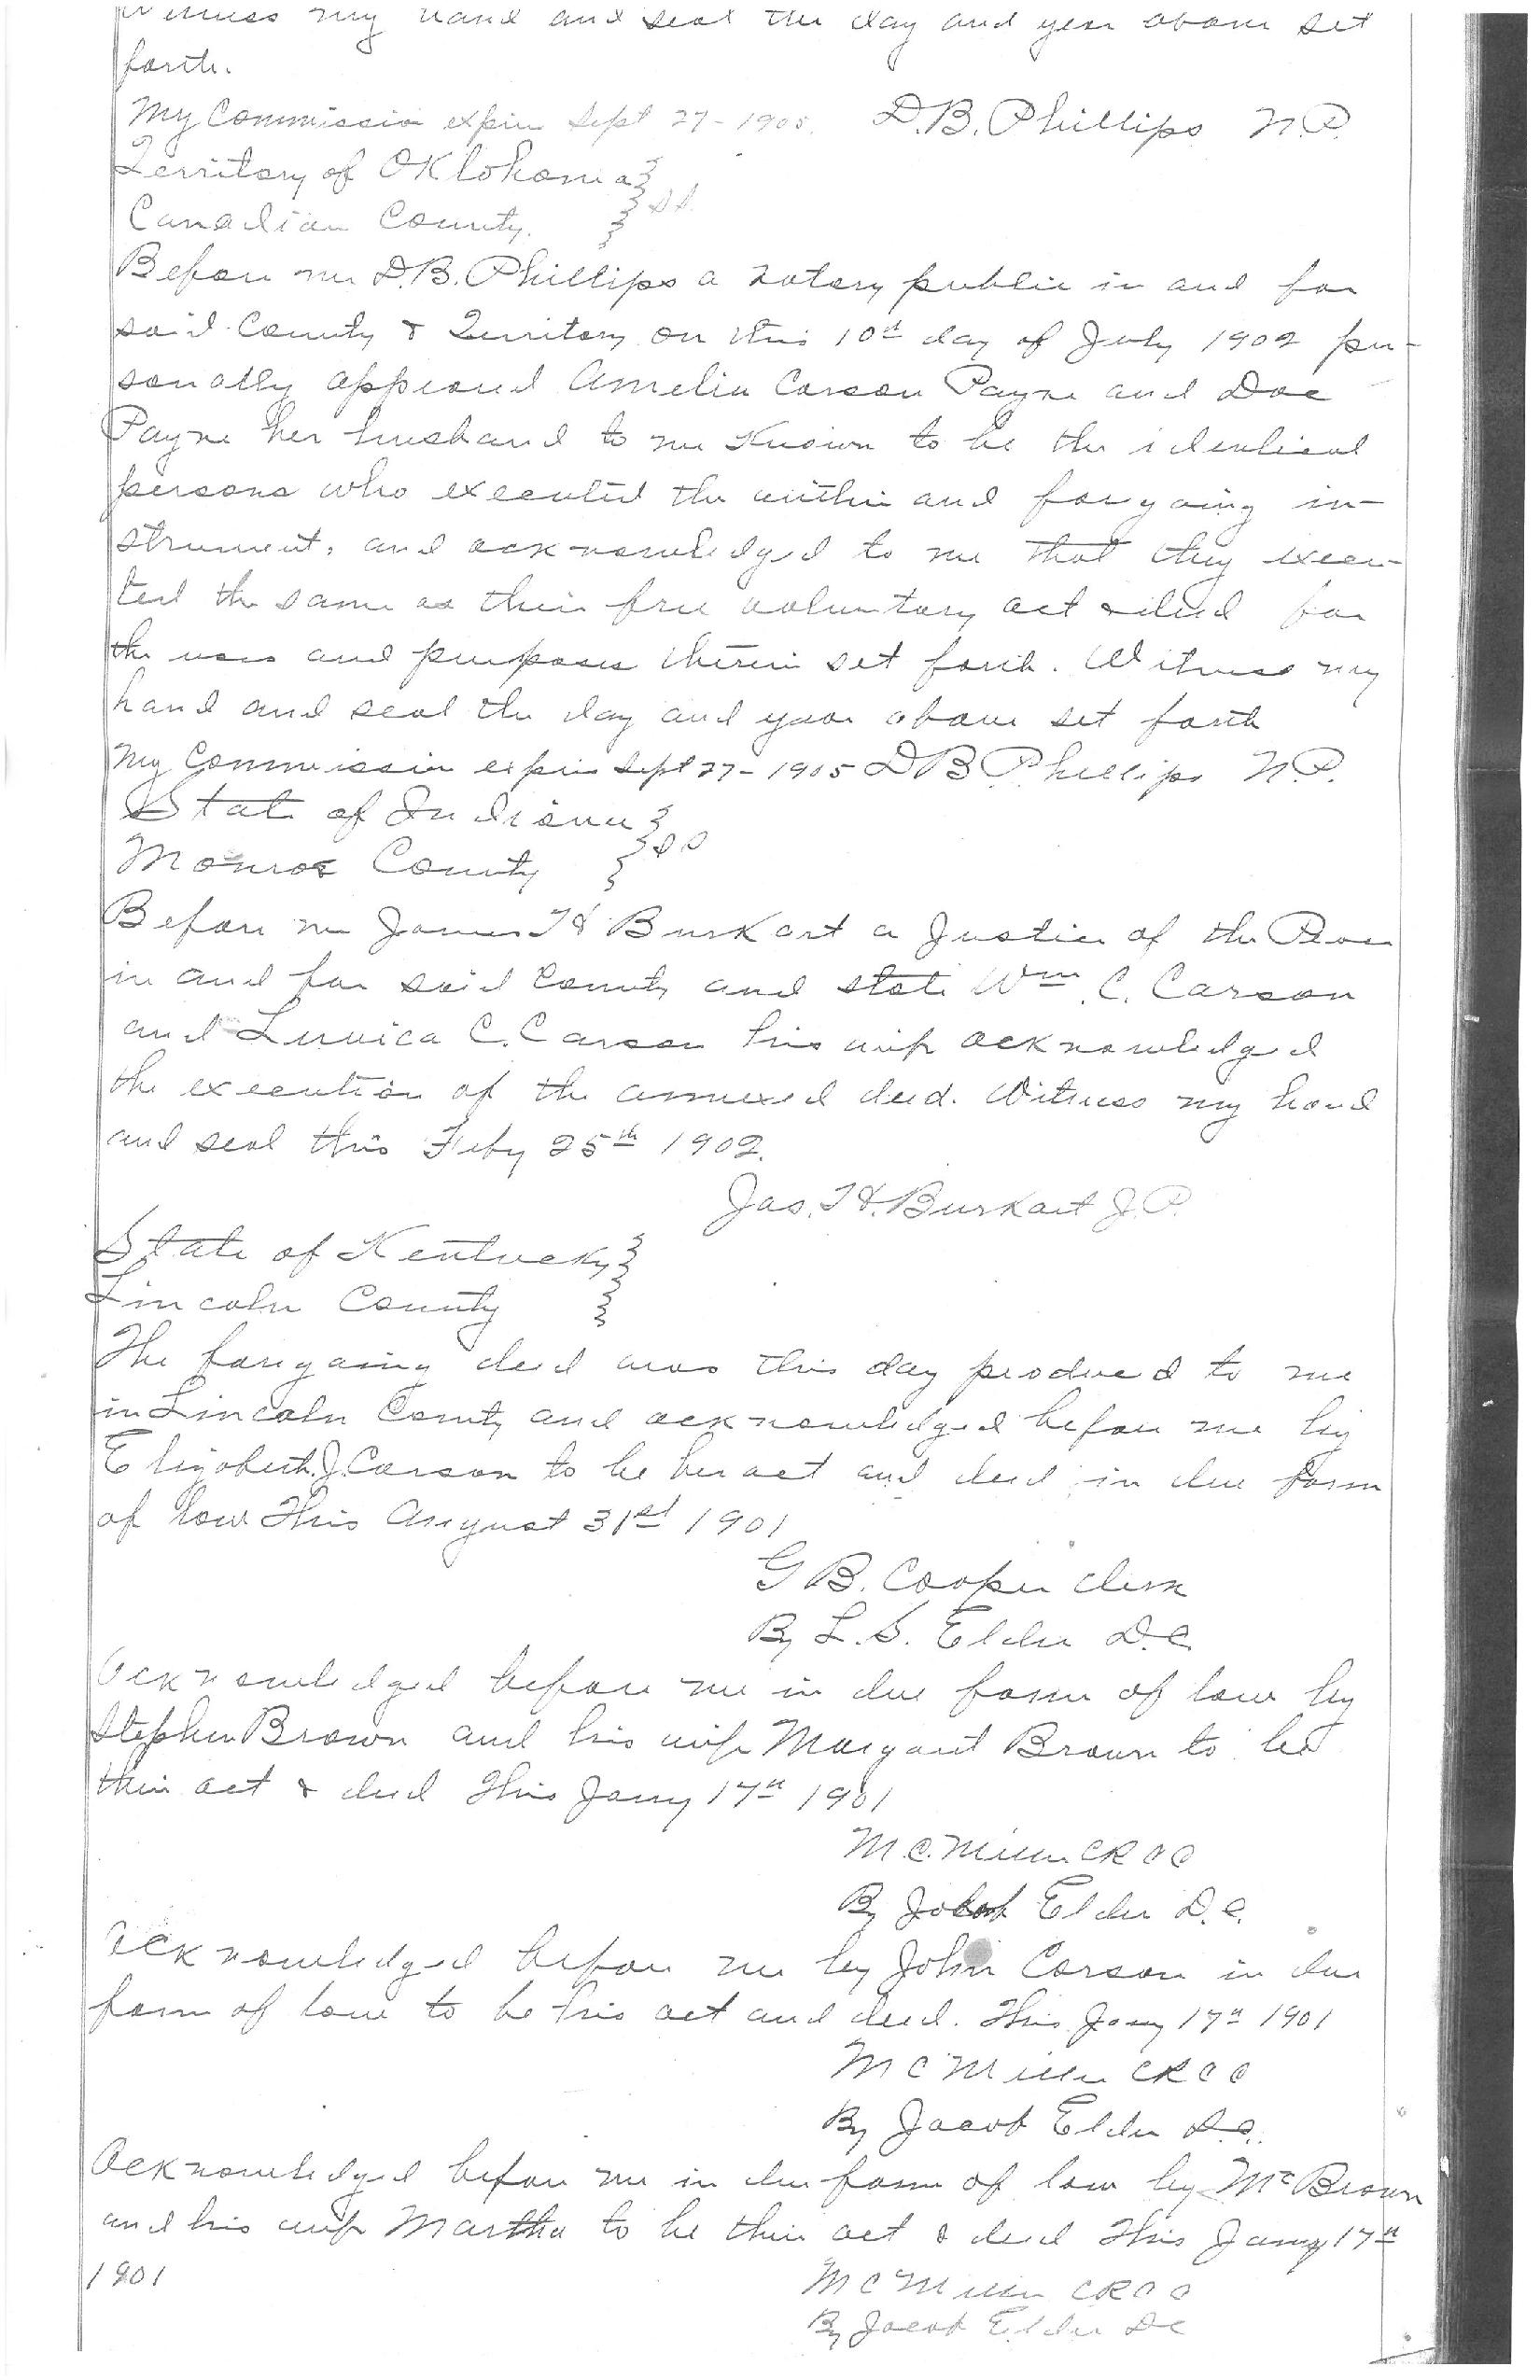 Witness my hand and seal the day and year above set
forth.
My Commission expires Sept 27 - 1905. D.B. Phillips N.P.
Territory of Oklohoma }
Canadian County. } SS.
Before me D.B. Phillips a notary public in and for
said County & Territory on this 10th day of July 1902 per-
sonally appeared Amelia Carson Payne and Doc
Payne her husband to me Known to be the identical
persons who executed the within and forgoing in-
strument, and acknowledged to me that they execu-
ted the same as their free voluntary act & deed for
the uses and purposes therein set forth. Witness my
hand and seal the day and year above set forth
My Commission expires Sept 27 - 1905 D B Phillips N.P.
State of Indiana }
Monroe County } SS
Before me James H Burkart a Justice of the Peace
in and for said County and state Wm. C. Carson
and Luvica C. Carson his wife acknowledged
the execution of the annexed deed. Witness my hand
and seal this Feby 25th 1902.
Jas. H. Burkart J.P.
State of Kentucky }
Lincoln County }
The foregoing deed was this day produced to me
in Lincoln County and acknowledged before me by
Elizabeth J. Carson to be her act and deed in due form
of law This August 31st 1901
G B. Cooper Clerk
By L. S. Elder D.C.
Acknowledged before me in due form of law by
Stephen Brown and his wife Margaret Brown to be
their act & deed This Jany 17th 1901
M. C. Miller CK C C
By Jacob Elder D.C.
Acknowledged before me by John Carson in due
form of law to be his act and deed. This Jany 17th 1901
M C Miller CK C C
By Jacob Elder D.C.
Acknowledged before me in due form of law by Mc Brown
and his wife Martha to be their act & deed This Jany 17th
1901
M C Miller CK C C
By Jacob Elder DC